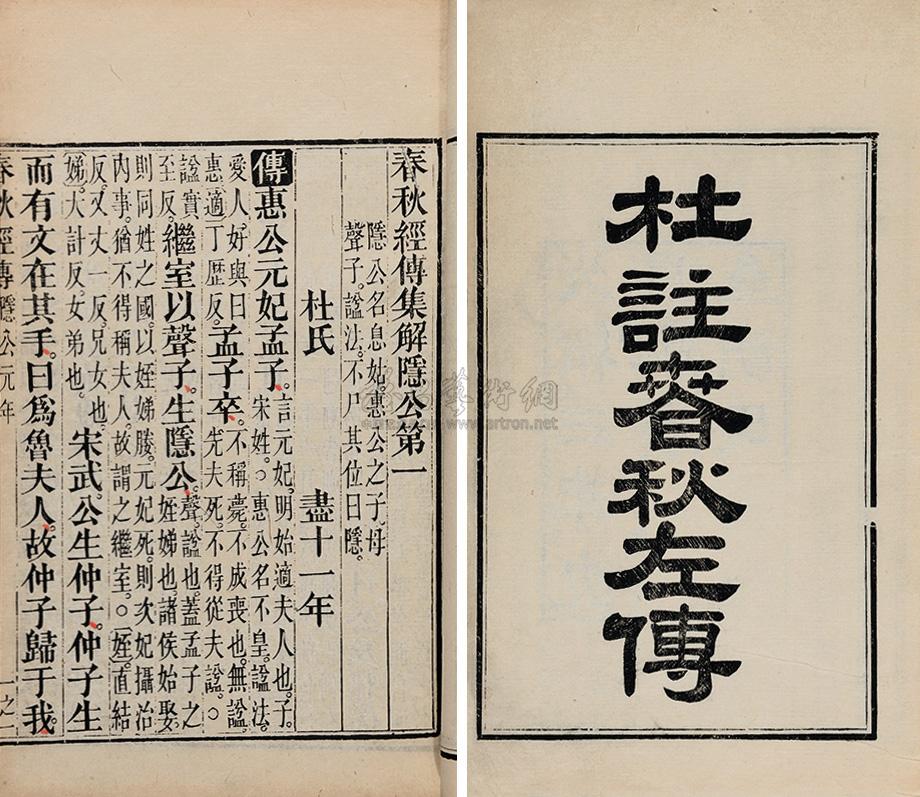 杜註春秋左傳
春秋經傳集解隱公第一
隱公名息姑。惠公之子。母
聲子。諡法。不尸其位曰隱。
杜氏 盡十一年
傳惠公元妃孟子。言元妃。明始適夫人也。子。宋姓。○惠公名不皇。諡法。
愛人好與曰惠。適丁歷反。孟子卒。不稱薨。不成喪也。無諡。先夫死。不得從夫諡。○
諡實至反。繼室以聲子。生隱公。聲。諡也。蓋孟子之姪娣也。諸侯始娶
則同姓之國。以姪娣媵。元妃死。則次妃攝治內事。猶不得稱夫人。故謂之繼室。○姪。直結
反。又丈一反。兄女也。娣。大計反。女弟也。宋武公生仲子。仲子生
而有文在其手。曰爲魯夫人。故仲子歸于我。
春秋經傳 隱公元年 一之一
artron.net